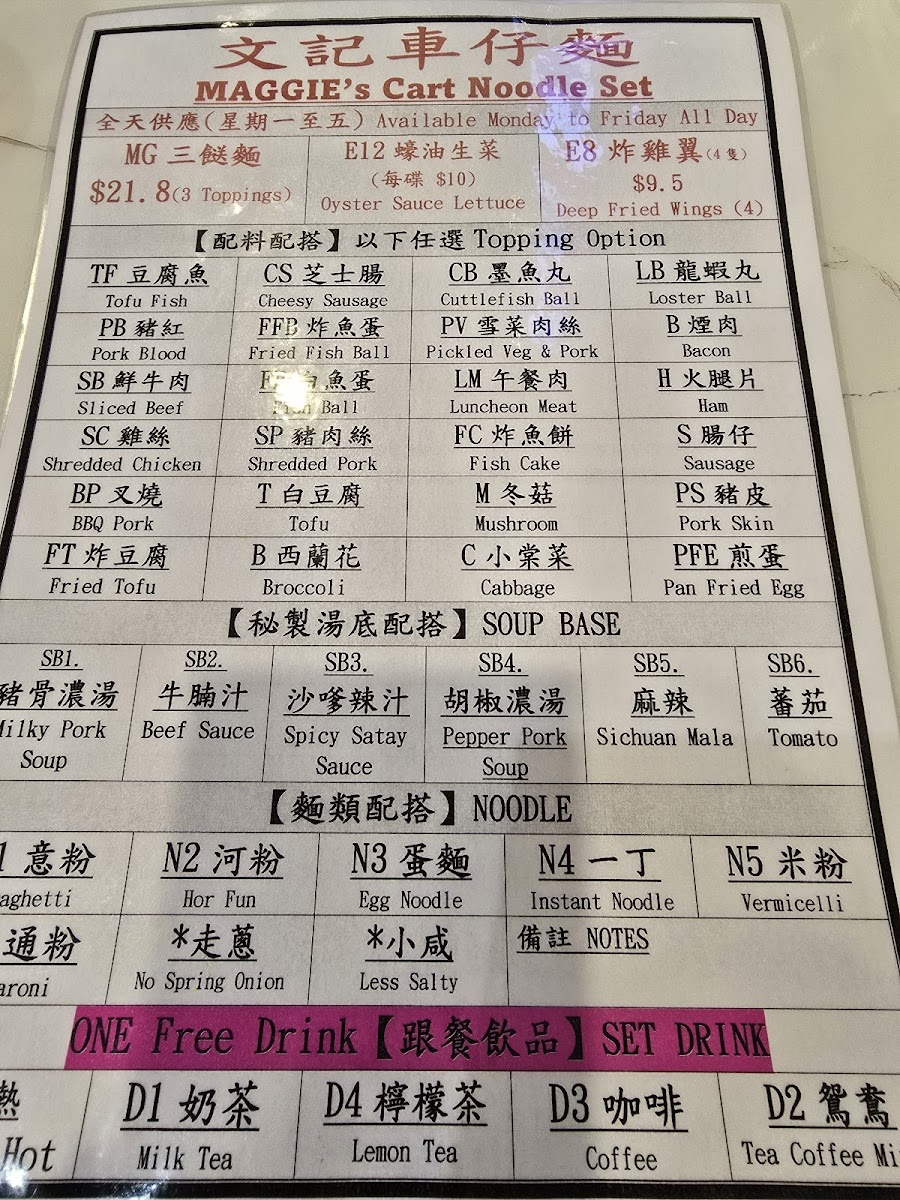 文記車仔麵
MAGGIE's Cart Noodle Set
全天供應(星期一至五) Available Monday to Friday All Day
MG 三餸麵
$21.8(3 Toppings)
E12 蠔油生菜
(每碟 $10)
Oyster Sauce Lettuce
E8 炸雞翼(4隻)
$9.5
Deep Fried Wings (4)
【配料配搭】以下任選 Topping Option
TF 豆腐魚
Tofu Fish
CS 芝士腸
Cheesy Sausage
CB 墨魚丸
Cuttlefish Ball
LB 龍蝦丸
Loster Ball
PB 豬紅
Pork Blood
FFB 炸魚蛋
Fried Fish Ball
PV 雪菜肉絲
Pickled Veg & Pork
B 煙肉
Bacon
SB 鮮牛肉
Sliced Beef
白魚蛋
Fish Ball
LM 午餐肉
Luncheon Meat
H 火腿片
Ham
SC 雞絲
Shredded Chicken
SP 豬肉絲
Shredded Pork
FC 炸魚餅
Fish Cake
S 腸仔
Sausage
BP 叉燒
BBQ Pork
T 白豆腐
Tofu
M 冬菇
Mushroom
PS 豬皮
Pork Skin
FT 炸豆腐
Fried Tofu
B 西蘭花
Broccoli
C 小棠菜
Cabbage
PFE 煎蛋
Pan Fried Egg
【秘製湯底配搭】SOUP BASE
SB1.
豬骨濃湯
Milky Pork
Soup
SB2.
牛腩汁
Beef Sauce
SB3.
沙嗲辣汁
Spicy Satay
Sauce
SB4.
胡椒濃湯
Pepper Pork
Soup
SB5.
麻辣
Sichuan Mala
SB6.
蕃茄
Tomato
【麵類配搭】NOODLE
1 意粉
aghetti
N2 河粉
Hor Fun
N3 蛋麵
Egg Noodle
N4 一丁
Instant Noodle
N5 米粉
Vermicelli
通粉
aroni
*走蔥
No Spring Onion
*小咸
Less Salty
備註 NOTES
ONE Free Drink【跟餐飲品】SET DRINK
熱
Hot
D1 奶茶
Milk Tea
D4 檸檬茶
Lemon Tea
D3 咖啡
Coffee
D2 鴛鴦
Tea Coffee Mi